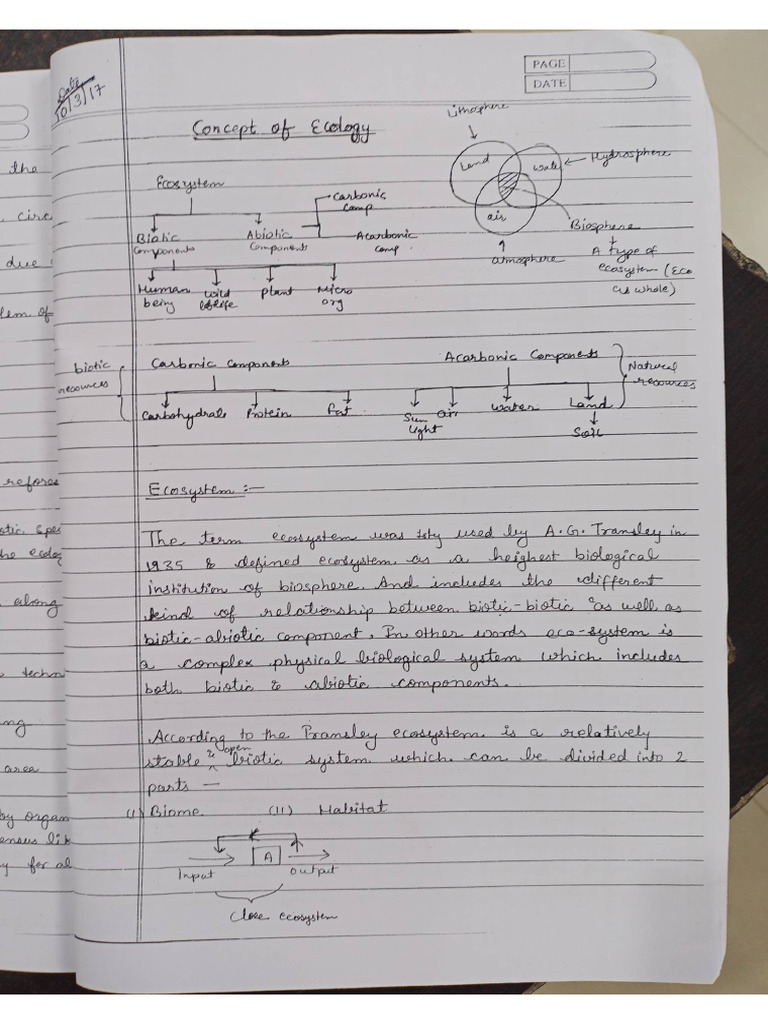 Date
10/3/17
PAGE
DATE
Concept of Ecology
Lithosphere
Land
water
Hydrosphere
air
Biosphere
atmosphere
A type of
ecosystem (Eco
as whole)
Ecosystem
Carbonic
comp
Biotic
Components
Abiotic
Components
Acarbonic
comp.
Human
being
Wild
life
Plant
Micro
org
biotic
reources
Carbonic Components
Acarbonic Components
Natural
reources
Carbohydrate
Protein
Fat
Sun
light
air
water
Land
Soil
Ecosystem :-
The term ecosystem was 1sty used by A.G. Transley in
1935 & defined ecosystem as a heighest biological
institution of biosphere. And includes the different
kind of relationship between biotic-biotic as well as
biotic-abiotic component. In other words eco-system is
a complex physical biological system which includes
both biotic & abiotic components.
According to the Transley ecosystem is a relatively
stable & open biotic system which can be divided into 2
parts —
(I) Biome. (II) Habitat
Input
A
Output
Close ecosystem
the
circ
due
lem of
refores
stic spe
the ecolog
along
techn
ng
area
by organ
ensus lik
y for al